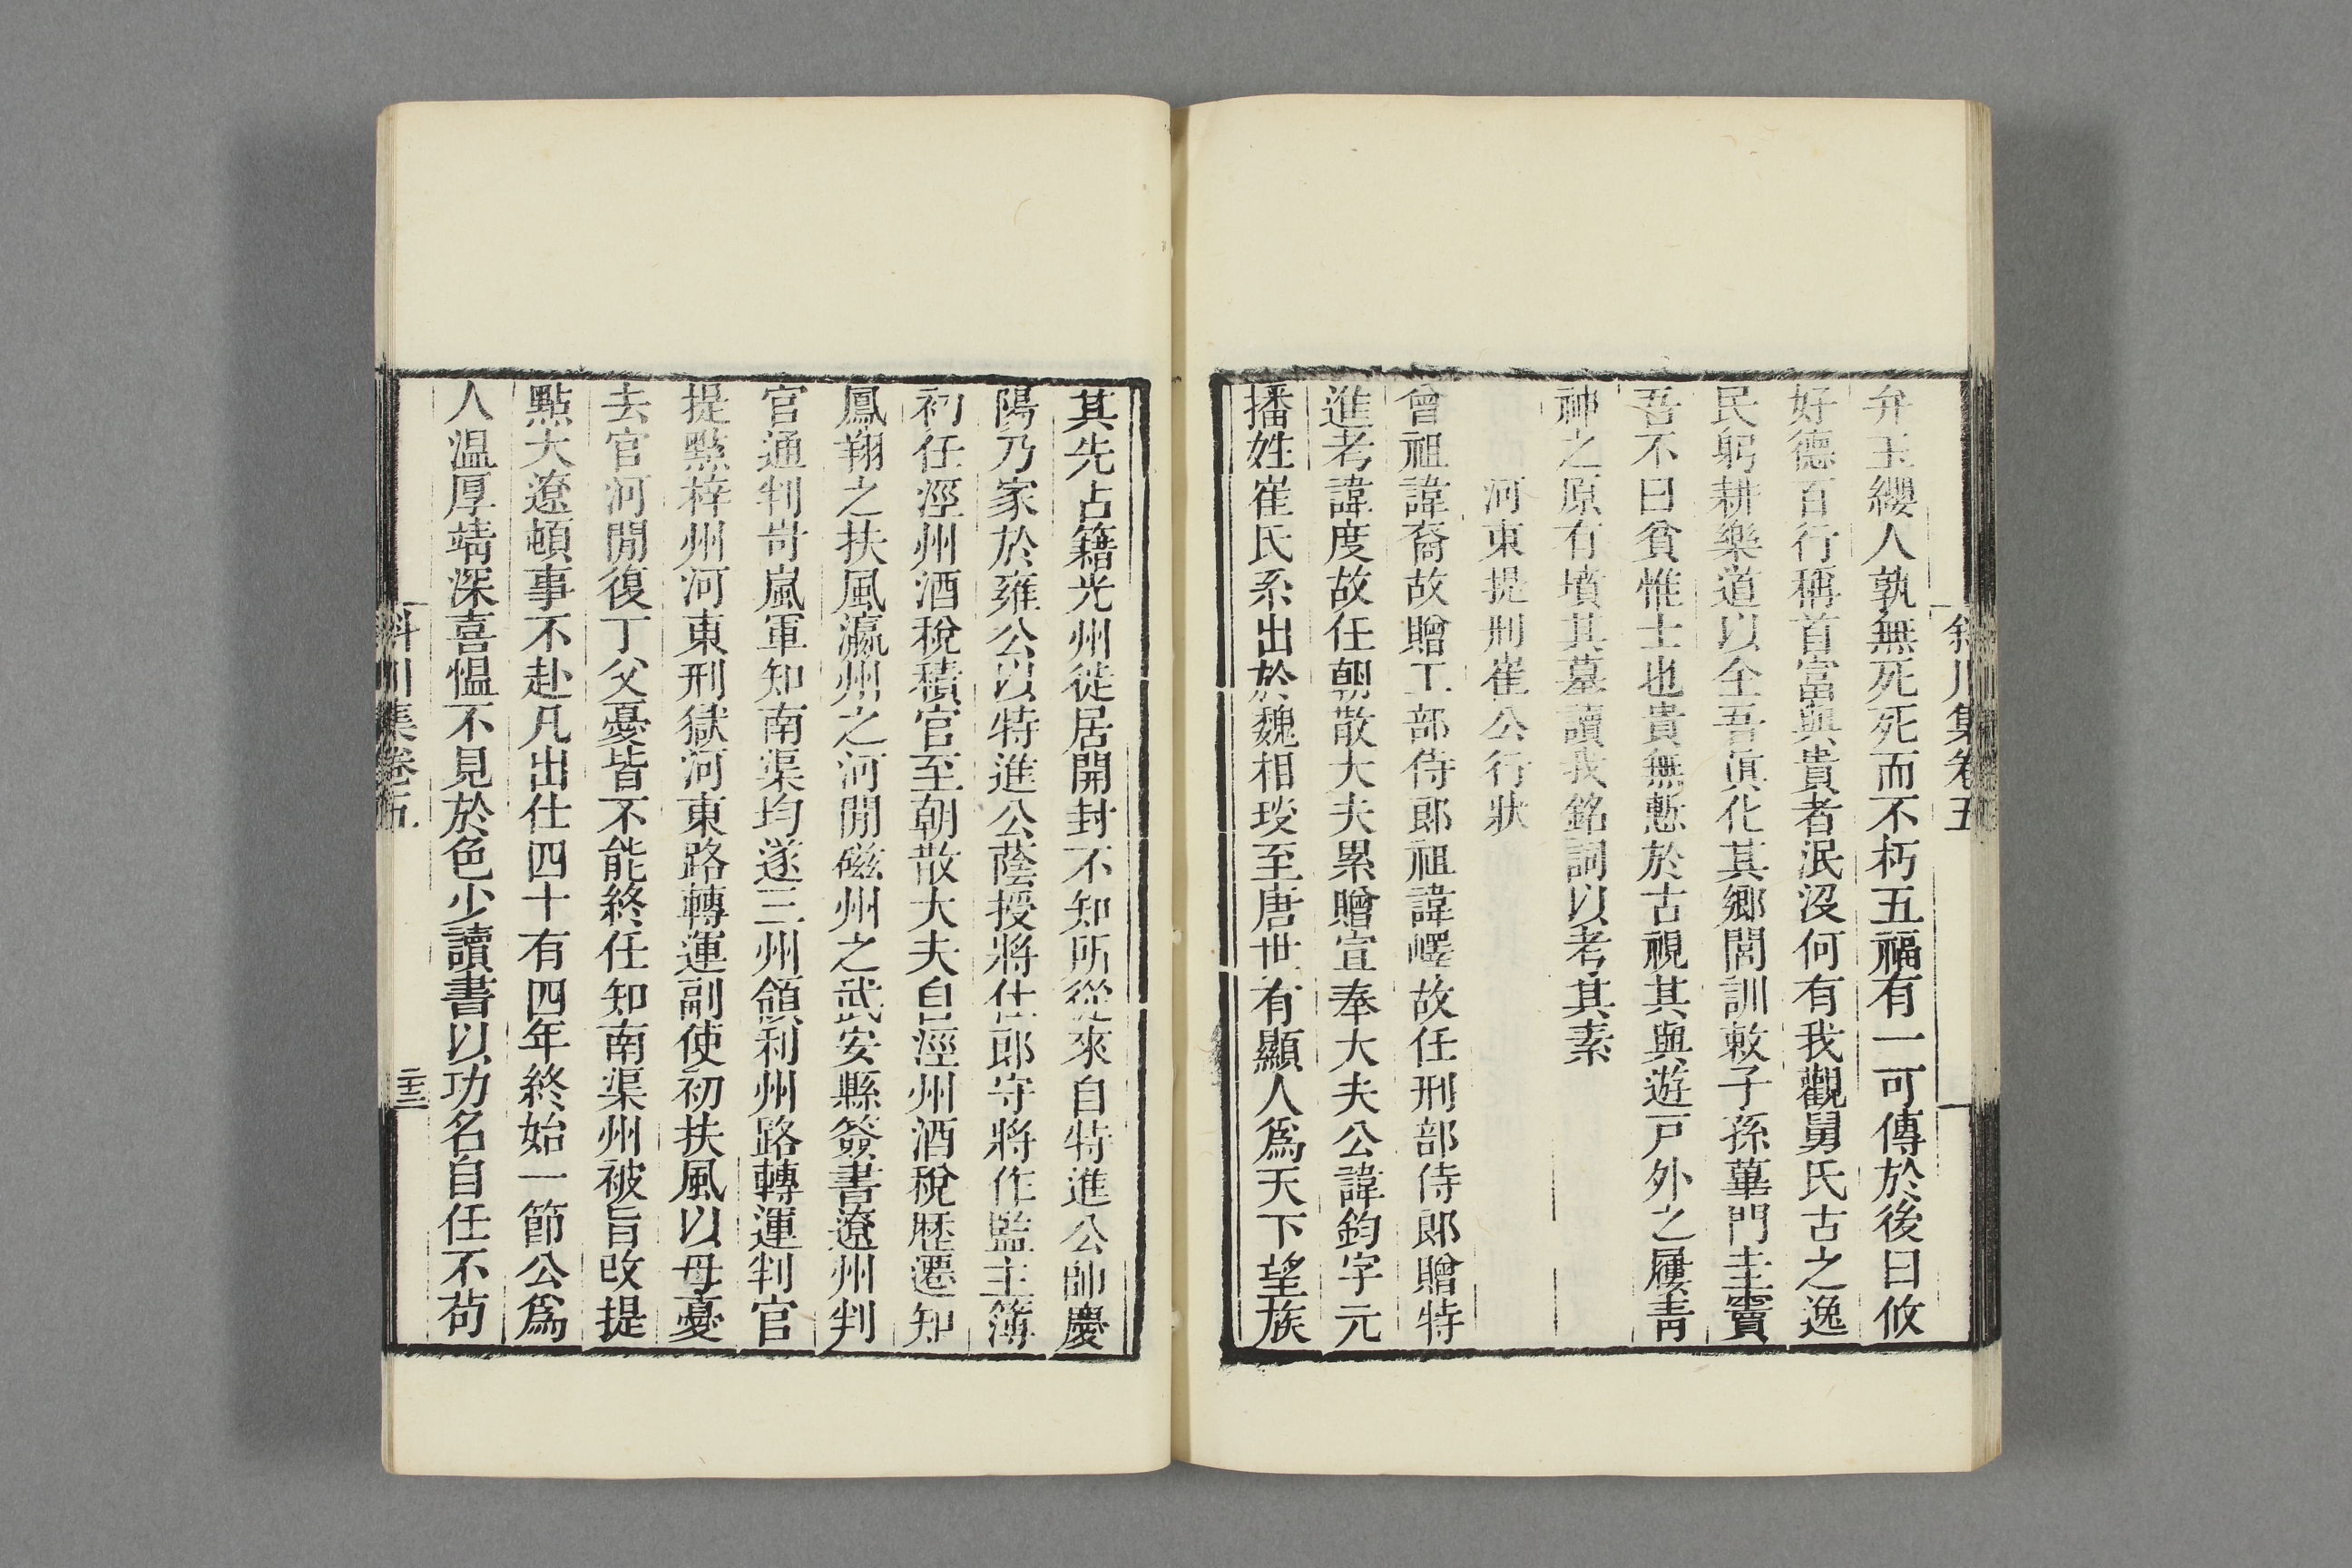 斜川集卷五
弁玉纓人孰無死死而不朽五福有一可傳於後曰攸
好德百行稱首富與貴者泯沒何有我觀舅氏古之逸
民躬耕樂道以全吾眞化其鄉閭訓敕子孫蓽門圭竇
吾不曰貧惟士也貴無慙於古視其與遊戸外之屨靑
神之原有墳其墓讀我銘詞以考其素
河東提刑崔公行狀
曾祖諱裔故贈工部侍郎祖諱嶧故任刑部侍郎贈特
進考諱度故任朝散大夫累贈宣奉大夫公諱鈞字元
播姓崔氏系出於魏相琰至唐世有顯人爲天下望族
其先占籍光州徙居開封不知所從來自特進公帥慶
陽乃家於雍公以特進公蔭授將仕郎守將作監主簿
初任涇州酒稅積官至朝散大夫自涇州酒稅歴遷知
鳳翔之扶風瀛州之河閒磁州之武安縣簽書遼州判
官通判岢嵐軍知南渠均遂三州領利州路轉運判官
提點梓州河東刑獄河東路轉運副使初扶風以母憂
去官河閒復丁父憂皆不能終任知南渠州被旨改提
點大遼頓事不赴凡出仕四十有四年終始一節公爲
人溫厚靖深喜慍不見於色少讀書以功名自任不苟
斜川集卷五